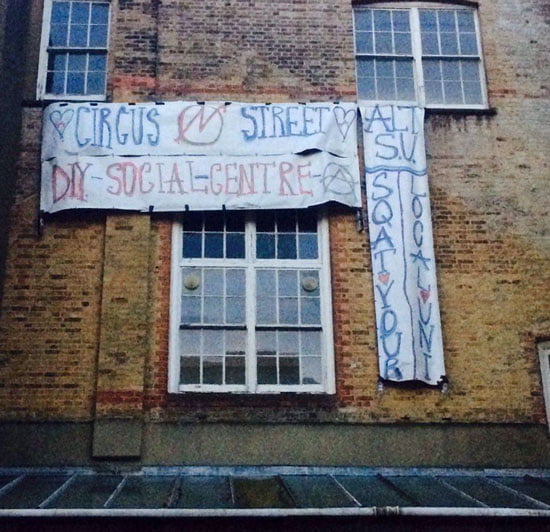 CIRCUS STREET
DIY-SOCIAL-CENTRE-
ALT
S.U.
SQAT YOUR
LOCAL UNI